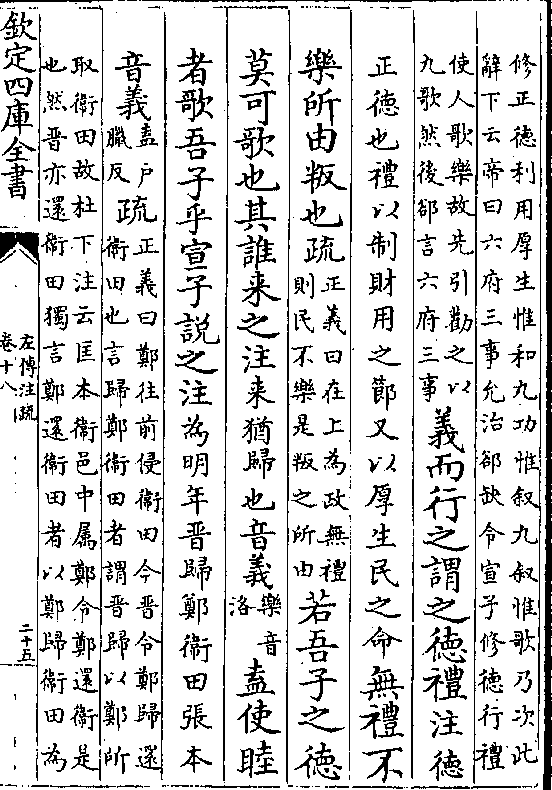 修正德利用厚生惟和九功惟叙九叙惟歌乃次此
辭下云帝曰六府三事允治郤缺令宣子修德行禮
使人歌樂故先引勸之以
九歌然後郤言六府三事
義而行之謂之德禮注德
正德也禮以制財用之節又以厚生民之命無禮不
樂所由叛也疏
正義曰在上為政無禮
則民不樂是叛之所由
若吾子之德
莫可歌也其誰来之注来猶歸也音義
樂音
洛
盍使睦
者歌吾子乎宣子説之注為明年晋歸鄭衛田張本
音義
盍户
臘反
疏
正義曰鄭往前侵衛田今晋令鄭歸還
衛田也言歸鄭衛田者謂晋歸以鄭所
取衛田故杜下注云匡本衛邑中属鄭令鄭還衛是
也然晋亦還衛田獨言鄭還衛田者以鄭歸衛田為
欽定四庫全書
左傳注疏
卷十八
二十五